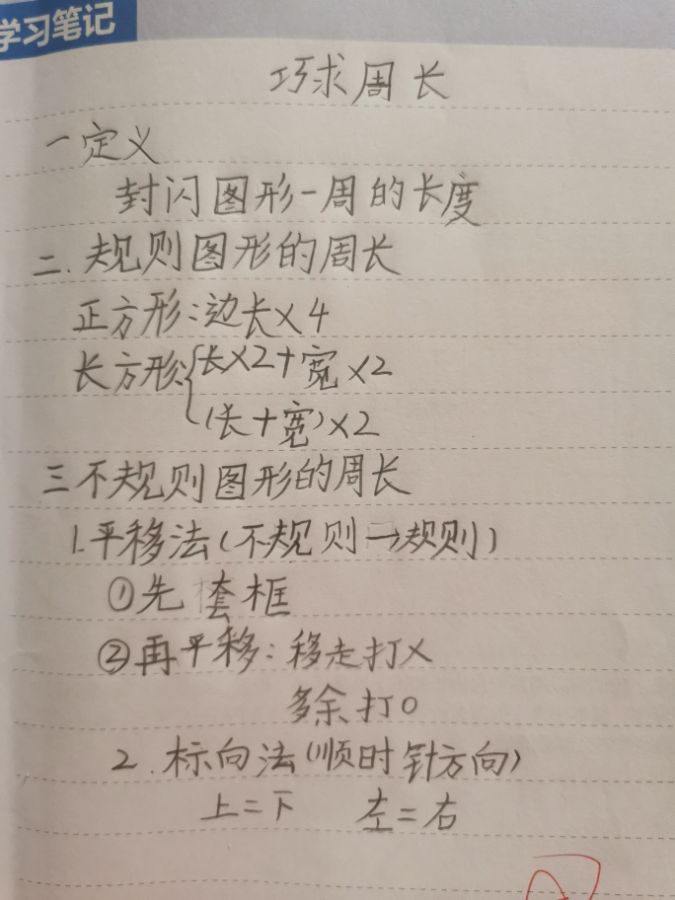 学习笔记
巧求周长
一定义
封闪图形一周的长度
二.规则图形的周长
正方形:边长×4
长方形:{长×2+宽×2
(长+宽)×2
三不规则图形的周长
1.平移法(不规则→规则)
①先套框
②再平移:移走打×
多余打○
2.标向法(顺时针方向)
上=下 左=右